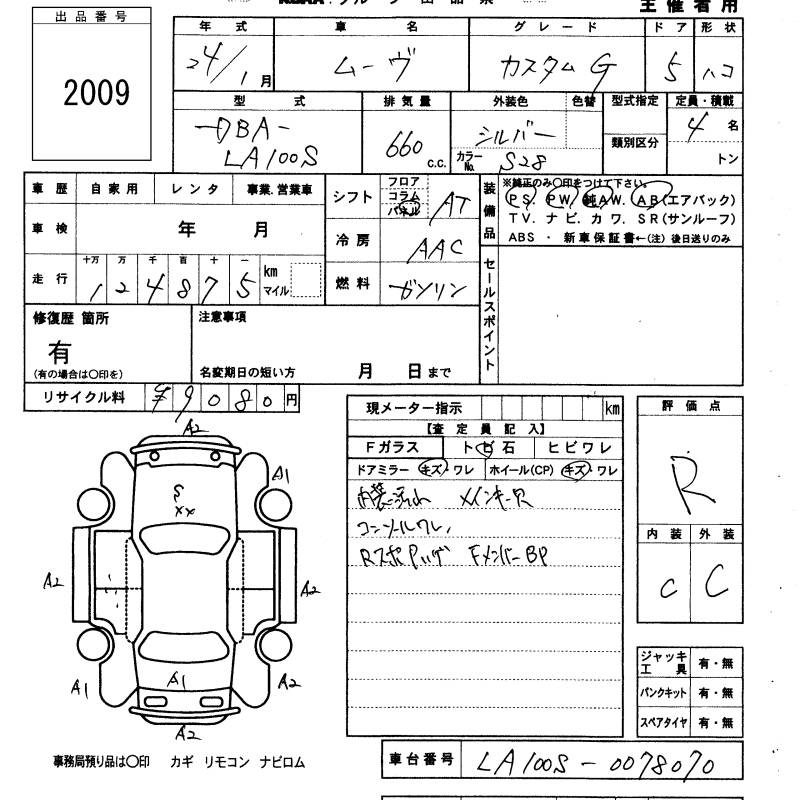 主催者用
出品番号
2009
年式 車名 グレード ドア 形状
24/1月 ムーヴ カスタム G 5 ハコ
型式 排気量 外装色 色替 型式指定 定員・積載
DBA-
LA100S
660 c.c.
シルバー
カラーNo. S28
類別区分
4 名
トン
車歴 自家用 レンタ 事業.営業車
車検 年 月
走行 十万 万 千 百 十 一
124875 km
マイル
シフト フロア コラム パネル AT
冷房 AAC
燃料 ガソリン
装備品
※純正のみ〇印をつけて下さい。
PS. PW. 純AW. AB(エアバック)
TV. ナビ. カワ. SR(サンルーフ)
ABS ・ 新車保証書←(注) 後日送りのみ
セールスポイント
修復歴 箇所
有
(有の場合は〇印を)
注意事項
名変期日の短い方 月 日まで
リサイクル料 ¥9080円
現メーター指示 km
【査定員記入】
Fガラス トビ石 ヒビワレ
ドアミラー キズ・ワレ ホイール(CP) キズ・ワレ
内装汚れ メインキー欠
コンソールワレ
Fメンバー BP
評価点
R
内装 外装
C C
ジャッキ工具 有・無
パンクキット 有・無
スペアタイヤ 有・無
A2
A1
S
XX
A2
A2
A1
A1
A2
A2
事務局預り品は〇印 カギ リモコン ナビロム
車台番号 LA100S-0078070